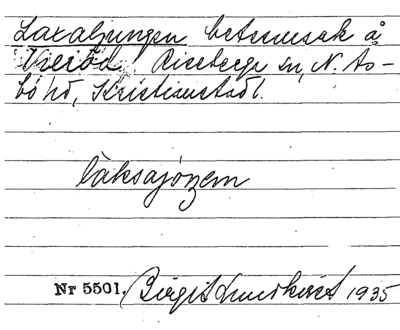 Laxaljungen betesmark å
Vieröd, Riseberga sn, N. Ås-
bo hd, Kristianstads l.
làksajóŋem
Nr 5501. Birgit Lundkvist 1935